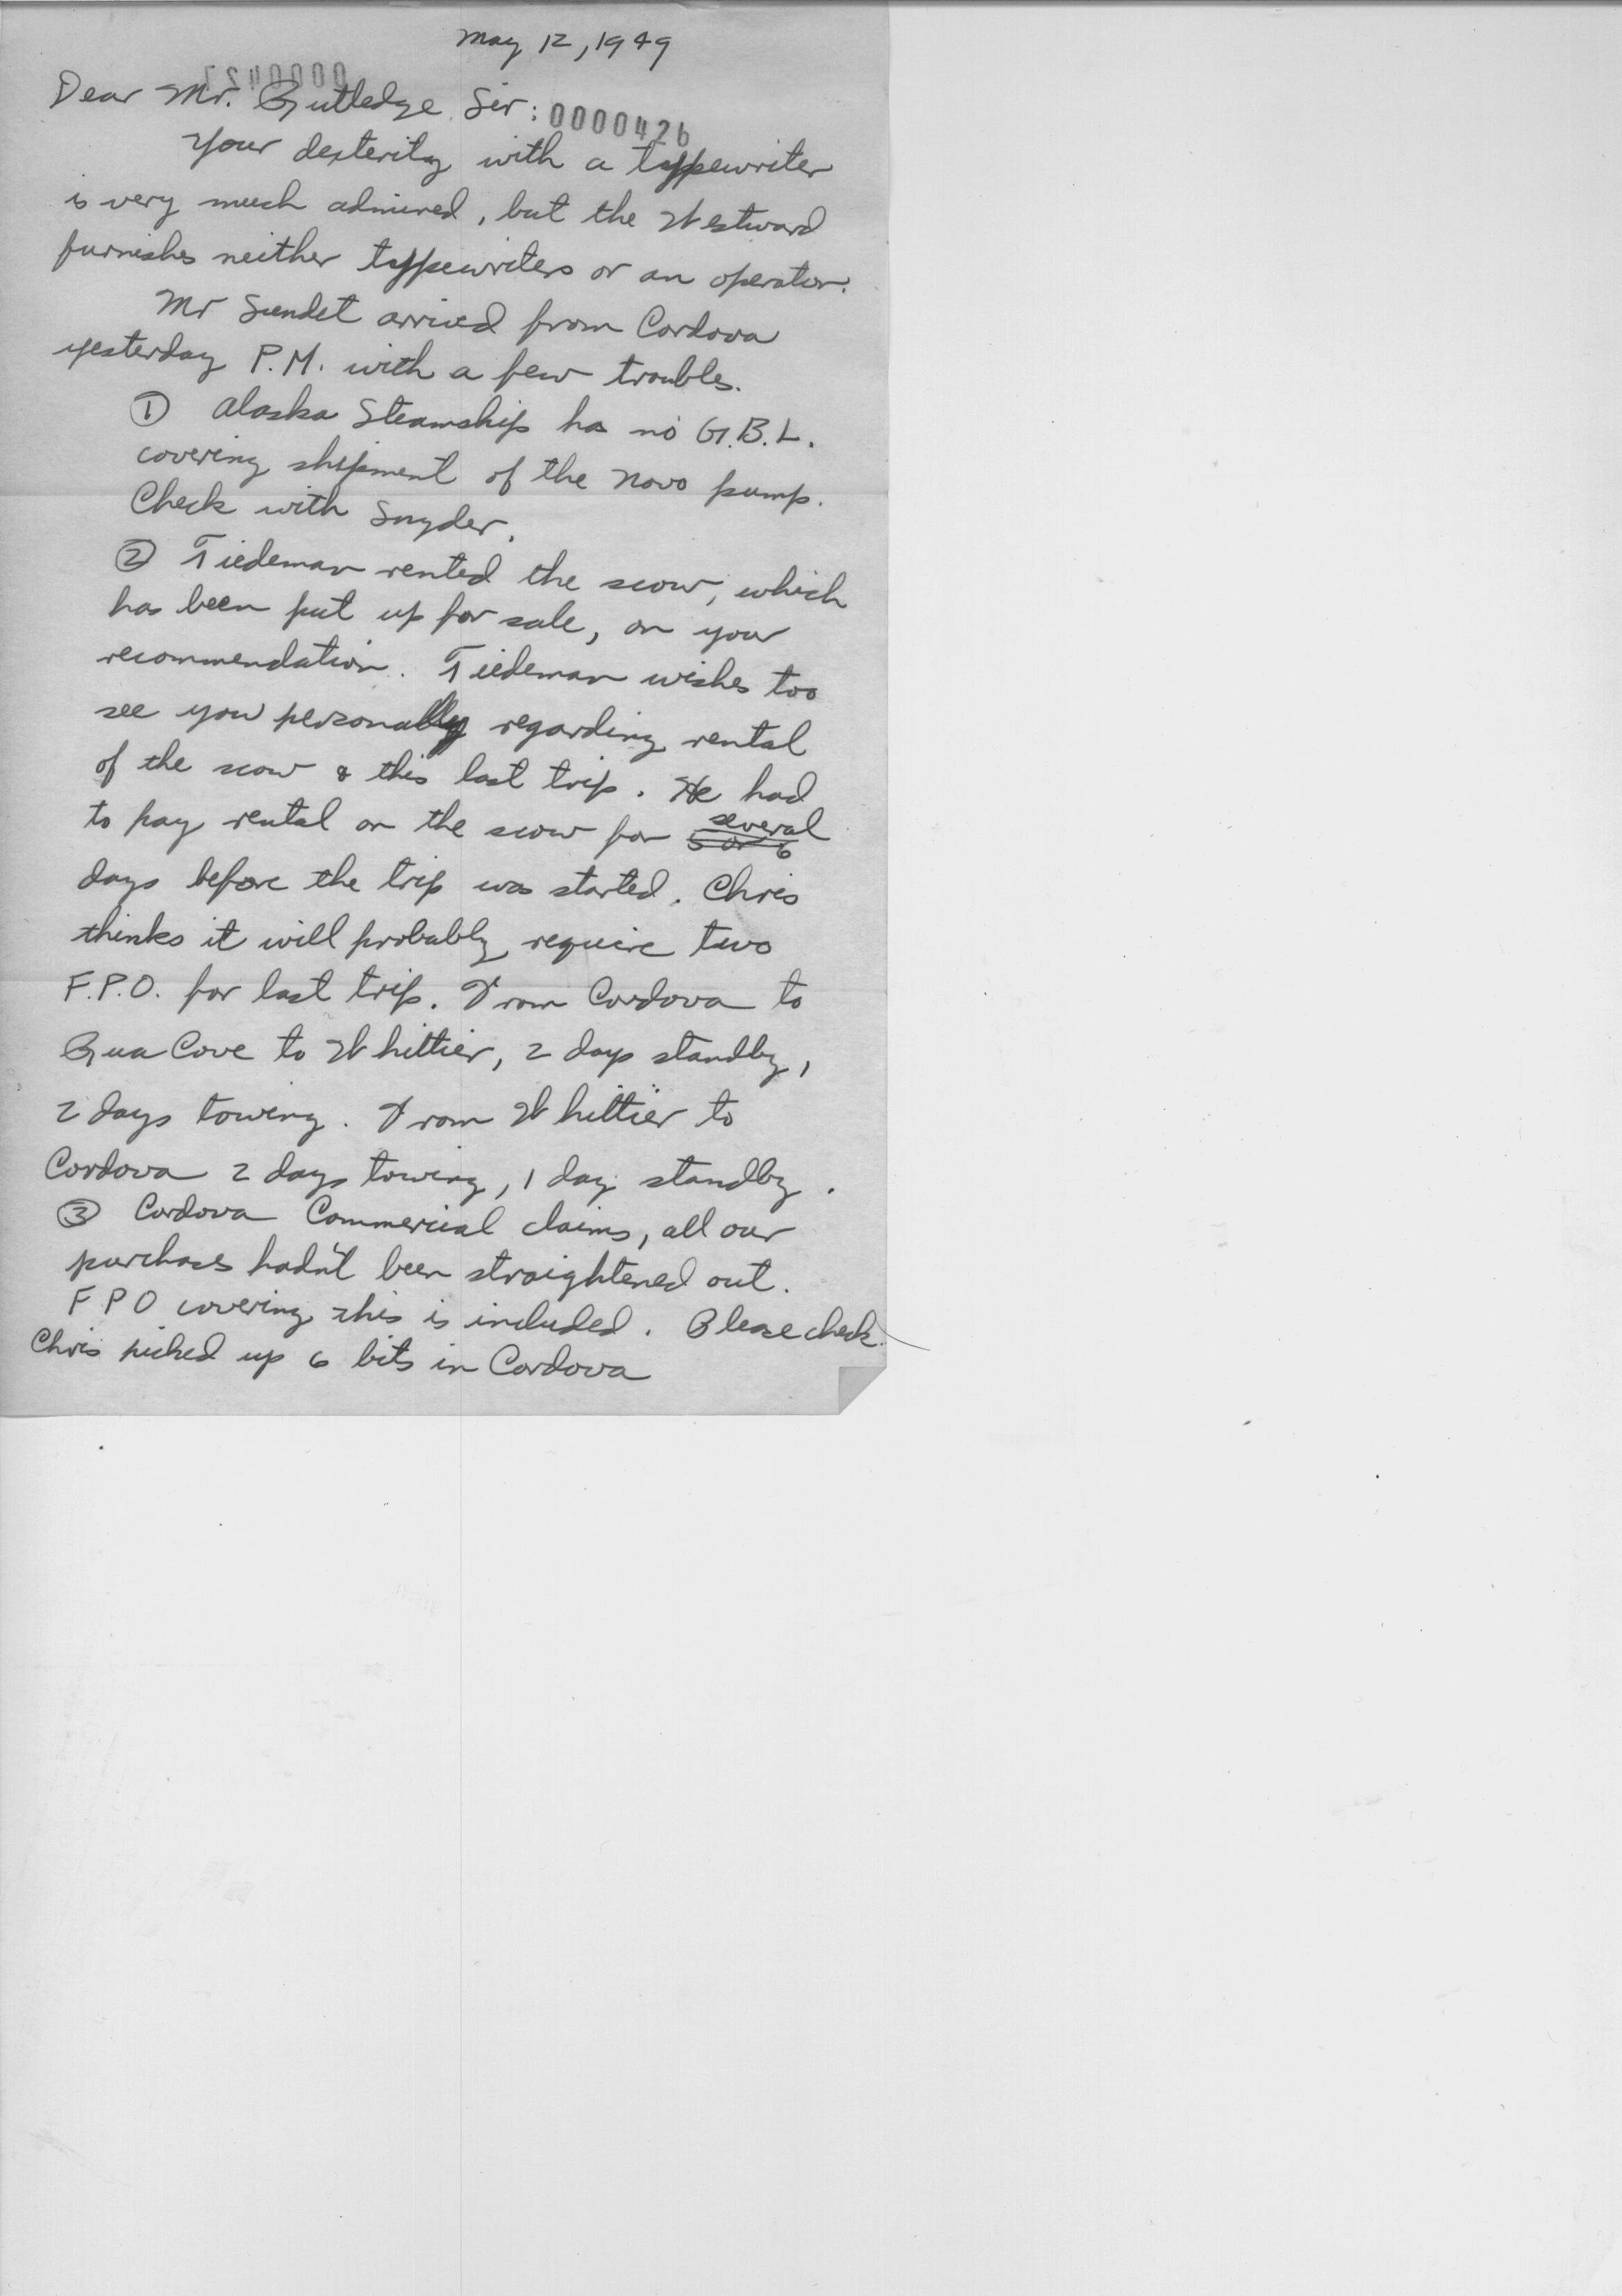 May 12, 1949
Dear Mr. Rutledge Sir: 0000426
Your dexterity with a typewriter
is very much admired, but the Westward
furnishes neither typewriters or an operator.
Mr Sundet arrived from Cordova
yesterday P.M. with a few troubles.
① Alaska Steamship has no G.B.L.
covering shipment of the Novo pump.
Check with Snyder.
② Tiedeman rented the scow, which
has been put up for sale, on your
recommendation. Tiedeman wishes too
see you personally regarding rental
of the scow & this last trip. He had
to pay rental on the scow for several
5 or 6
days before the trip was started. Chris
thinks it will probably require two
F.P.O. for last trip. From Cordova to
Rua Cove to Whittier, 2 days standby,
2 days towing. From Whittier to
Cordova 2 days towing, 1 day standby.
③ Cordova Commercial claims, all our
purchases hadn't been straightened out.
F P O covering this is included. Please check.
Chris picked up 6 bits in Cordova